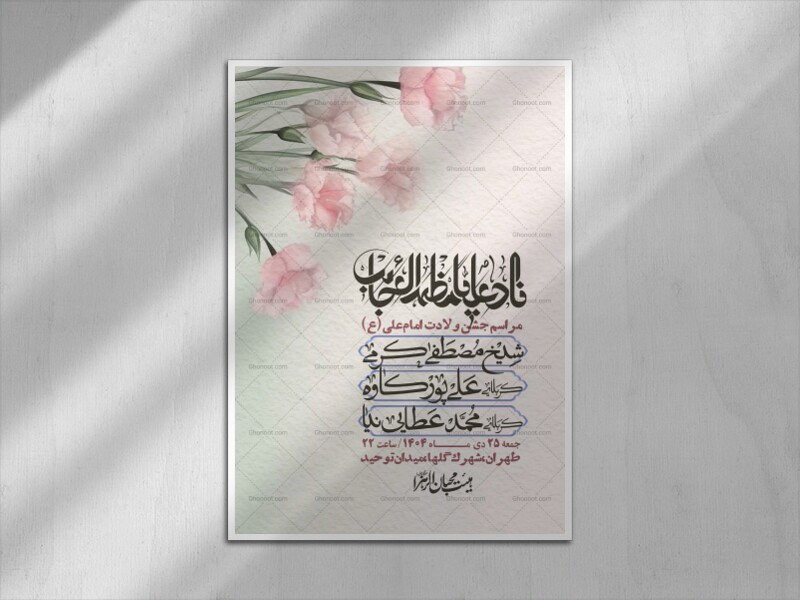 ناد علیا مظهر العجائب
مراسم جشن ولادت امام علی (ع)
شیخ مصطفی کرمی
کربلایی علی پورکاوه
کربلایی محمد عطایی نیا
جمعه ۲۵ دی مــاه ۱۴۰۴ / ساعت ۲۲
طهران،شهرک گلها،میدان توحید
هیئت محبان الزهرا
Ghonoot.com